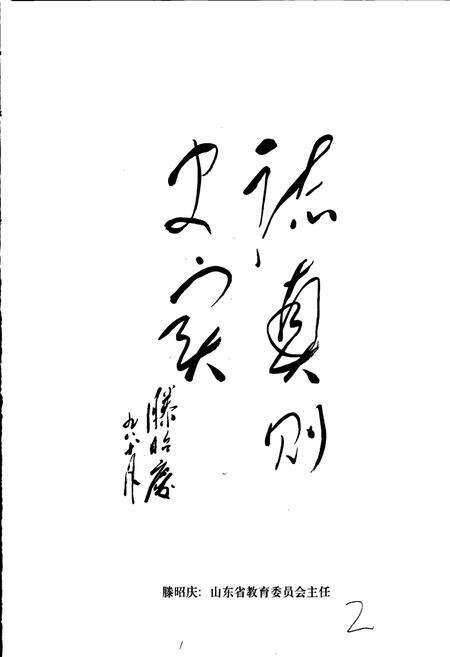 誌真则
史实
滕昭慶
九八十月
滕昭庆：山东省教育委员会主任
2
1